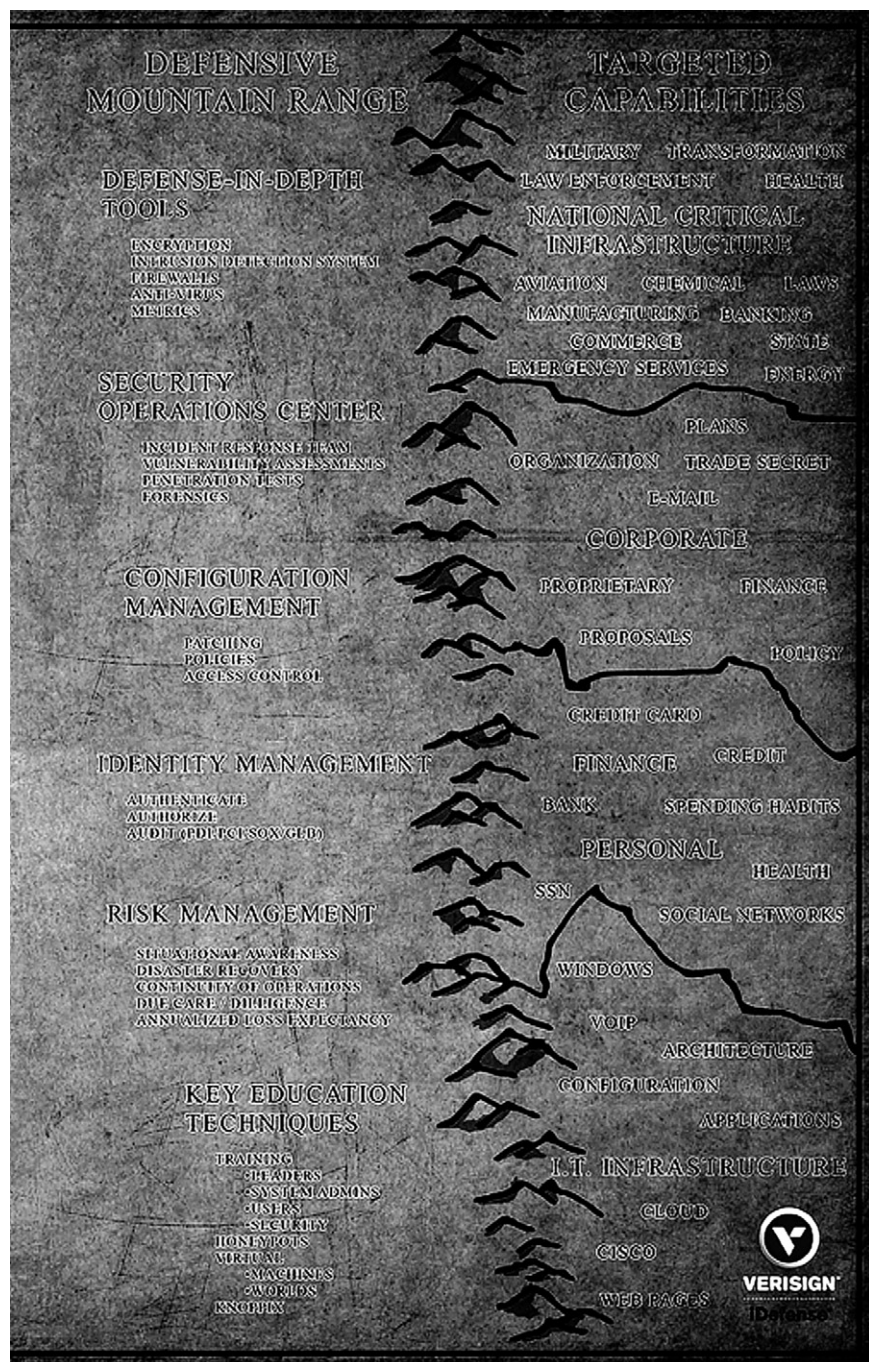 DEFENSIVE
MOUNTAIN RANGE
DEFENSE-IN-DEPTH
TOOLS
ENCRYPTION
INTRUSION DETECTION SYSTEM
FIREWALLS
ANTI-VIRUS
METRICS
SECURITY
OPERATIONS CENTER
INCIDENT RESPONSE TEAM
VULNERABILITY ASSESSMENTS
PENETRATION TESTS
FORENSICS
CONFIGURATION
MANAGEMENT
PATCHING
POLICIES
ACCESS CONTROL
IDENTITY MANAGEMENT
AUTHENTICATE
AUTHORIZE
AUDIT (PDI/PCI/SOX/GLB)
RISK MANAGEMENT
SITUATIONAL AWARENESS
DISASTER RECOVERY
CONTINUITY OF OPERATIONS
DUE CARE / DILLIGENCE
ANNUALIZED LOSS EXPECTANCY
KEY EDUCATION
TECHNIQUES
TRAINING
•LEADERS
•SYSTEM ADMINS
•USERS
•SECURITY
HONEYPOTS
VIRTUAL
•MACHINES
•WORLDS
KNOPPIX
TARGETED
CAPABILITIES
MILITARY TRANSFORMATION
LAW ENFORCEMENT HEALTH
NATIONAL CRITICAL
INFRASTRUCTURE
AVIATION CHEMICAL LAWS
MANUFACTURING BANKING
COMMERCE STATE
EMERGENCY SERVICES ENERGY
PLANS
ORGANIZATION TRADE SECRET
E-MAIL
CORPORATE
PROPRIETARY FINANCE
PROPOSALS
POLICY
CREDIT CARD
FINANCE CREDIT
BANK SPENDING HABITS
PERSONAL
HEALTH
SSN
SOCIAL NETWORKS
WINDOWS
VOIP
ARCHITECTURE
CONFIGURATION
APPLICATIONS
I.T. INFRASTRUCTURE
CLOUD
CISCO
WEB PAGES
VERISIGN
iDefense